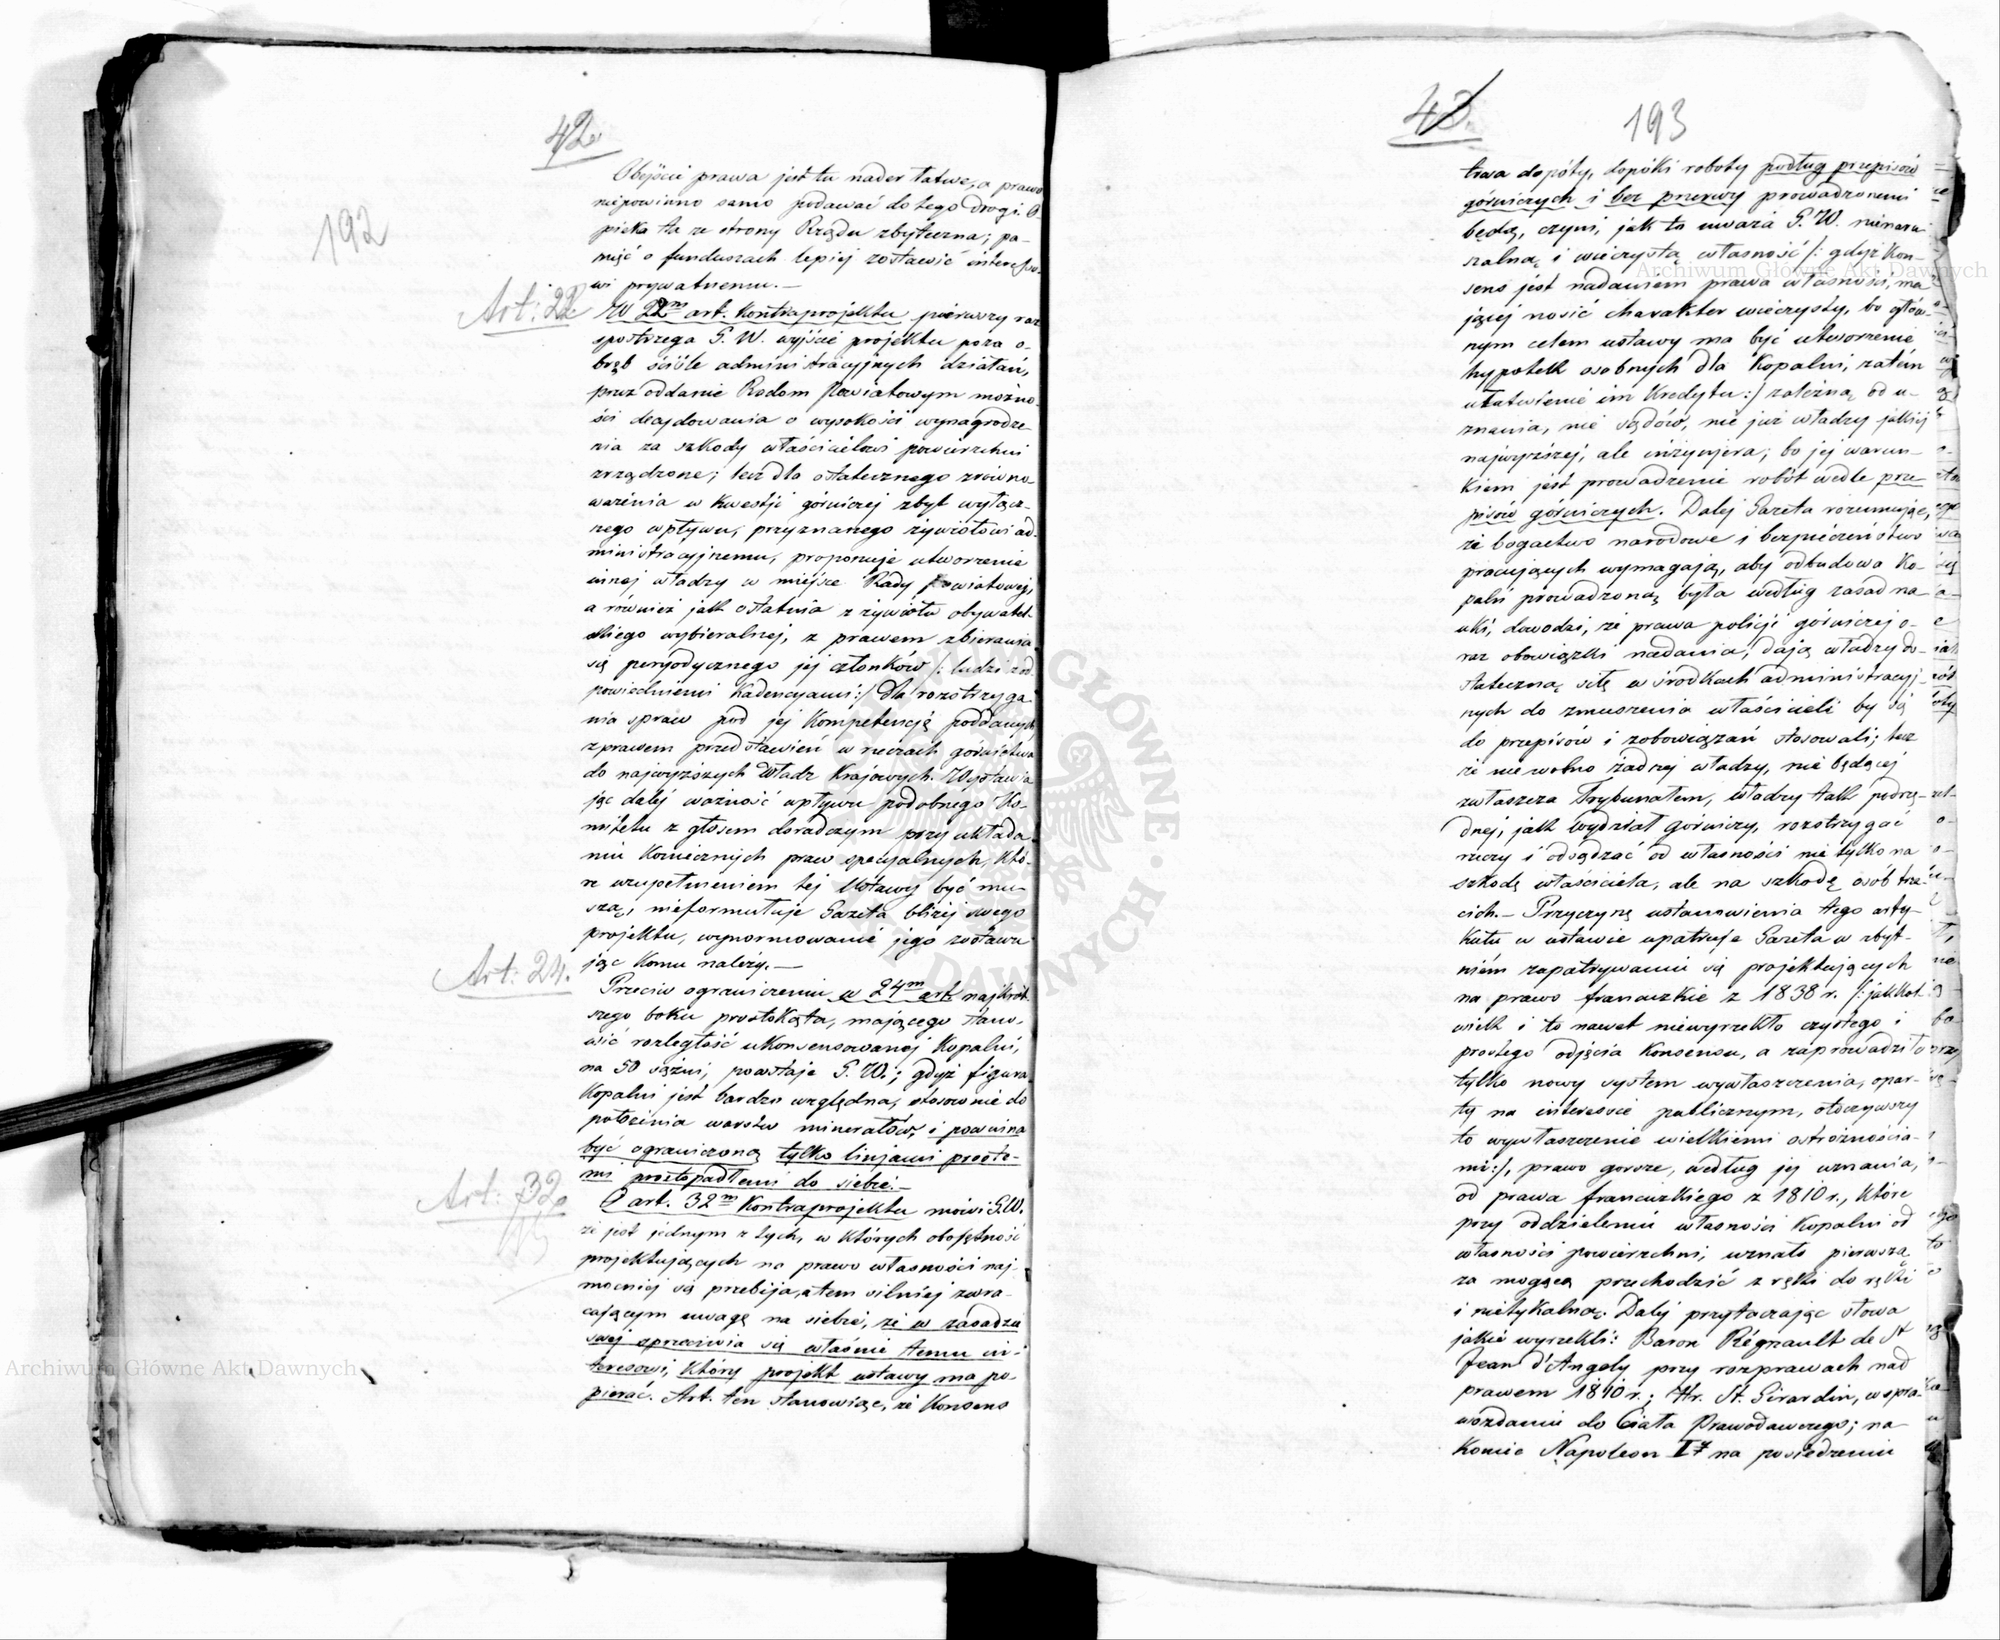 42.
192
Obejście prawa jest tu nader łatwe, a prawo
niepowinno samo podawać do tego drogi. O-
pieka ta ze strony Rządu zbyteczna; pa-
mięć o funduszach lepiej zostawić interesso-
wi prywatnemu. —
Art: 22
W 22m art. Kontraprojektu pierwszy raz
spostrzega G. W. wyjście projektu poza o-
bręb ściśle administracyjnych działań,
przez oddanie Radom Powiatowym możno-
ści decydowania o wysokości wynagrodze-
nia za szkody właścicielowi powierzchni
zrządzone; lecz dla ostatecznego zrówno-
ważenia w Kwestji górniczej zbyt wyłącz-
nego wpływu, przyznanego żywiołowi ad-
ministracyjnemu, proponuje utworzenie
innej władzy w miejsce Rady Powiatowej,
a również jak ostatnia z żywiołu obywatel-
skiego wybieralnej, z prawem zbierania
się peryodycznego jej członków /: ludzi z od-
powiedniemi Kadencyami :/ dla rozstrzyga-
nia spraw pod jej Kompetencję poddanych
z prawem przedstawień w rzeczach górnictwa
do najwyższych Władz Krajowych. Wystawia
jąc dalej ważność wpływu podobnego Ko-
mitetu z głosem doradczym przy układa-
niu Koniecznych praw specjalnych, Któ-
re uzupełnieniem tej Ustawy być mu-
szą, nieformułuje Gazeta bliżej swego
projektu, wynormowanie jego zostawu
jąc Komu należy. —
Art: 24.
Przeciw ograniczeniu w 24m art. najkrót-
szego boku prostokąta, mającego stano-
wić rozległość ukonsensowanej Kopalni,
na 50 sążni, powstaje G. W.; gdyż figura
Kopalni jest bardzo względna, stosownie do
położenia warstw minerałów, i powinna
być ograniczoną tylko linjami prosto-
mi prostopadłemi do siebie. —
Art: 32.
O art. 32m Kontraprojektu mówi G. W.
że jest jednym z tych, w których obojętność
projektujących na prawo własności naj-
mocniej się przebija, a tem silniej zwra-
cającym uwagę na siebie, że w zasadzie
swej sprzeciwia się właśnie temu in-
teresowi, Który projekt ustawy ma po-
pierać. Art. ten stanowiąc, że Konsens
43.
193
trwa dopóty, dopóki roboty podług przepisów
górniczych i bez przerwy prowadzonemi
będą, czyni, jak to uważa G. W. nienaru
szalną i wieczystą własność /: gdyż Kon-
sens jest nadaniem prawa własności, ma
jącej nosić charakter wieczysty, bo głów-
nym celem ustawy ma być utworzenie
hypotek osobnych dla Kopalni, zatém
ułatwienie im Kredytu :/ zależną od u-
znania, nie sądów, nie już władzy jakiej
najwyższej, ale inżynjera; bo jej warun-
kiem jest prowadzenie robót wedle prze
pisów górniczych. Dalej Gazeta rozumując,
że bogactwo narodowe i bezpieczeństwo
pracujących wymagają, aby odbudowa Ko-
palń prowadzoną była według zasad na-
uki, dowodzi, że prawa policji górniczej o-
raz obowiązki nadania, dają władzy do-
stateczną siłę w środkach administracyj-
nych do zmuszenia właścicieli by się
do przepisów i zobowiązań stosowali; lecz
że niewolno żadnej władzy, nie będącej
zwłaszcza Trybunałem, władzy tak podrzę-
dnej, jak wydział górniczy, rozstrzygać
rzeczy i odsądzać od własności nie tylko na
szkodę właściciela, ale na szkodę osób trze-
cich. — Przyczynę ustanowienia tego arty-
kułu w ustawie upatruje Gazeta w zbyt-
niém zapatrywaniu się projektujących
na prawo francuzkie z 1838 r. /: jakkol-
wiek i to nawet niewyrzekło czystego i
prostego odjęcia Konsensu, a zaprowadziło
tylko nowy system wywłaszczenia, opar-
ty na interesie publicznym, otoczywszy
to wywłaszczenie wielkiemi ostrożnościa-
mi :/, prawo gorsze, według jej uznania,
od prawa francuzkiego z 1810 r., Które
przy oddzieleniu własności Kopalni od
własności powierzchni, uznało pierwszą
za mogącą przechodzić z ręki do ręki
i nietykalną. Dalej przytaczając słowa
jakie wyrzekli: Baron Régnault de St
Jean d'Angely przy rozprawach nad
prawem 1810 r.; Hr. St. Girardin, w spra-
wozdaniu do Ciała Prawodawczego; na
Koniec Napoleon I na posiedzeniu
Archiwum Główne Akt Dawnych
Archiwum Główne Akt Dawnych